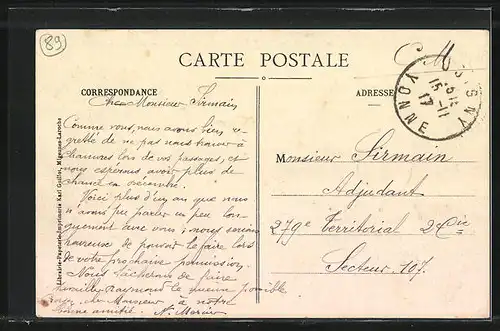 89
CARTE POSTALE
C. M.
CORRESPONDANCE
ADRESSE
YONNE
15 11
17
Cher Monsieur Sirmain,
Comme vous, nous avons bien re-
gretté de ne pas nous trouver à
lors de vos passages, et
nous espérons avoir plus de
chance en
Voici plus d'un an que nous
n'avons pu parler un peu lon-
guement avec vous, nous serions
heureuse de pouvoir le faire lors
de votre prochaine permission.
Nous tâcherons de faire
possible
cher Monsieur à notre
bonne amitié. N. Mercier
Monsieur Sirmain
Adjudant
279e Territorial 24 Cie
Secteur 107.
Librairie-Papeterie-Imprimerie Karl Guillot, Migennes-Laroche